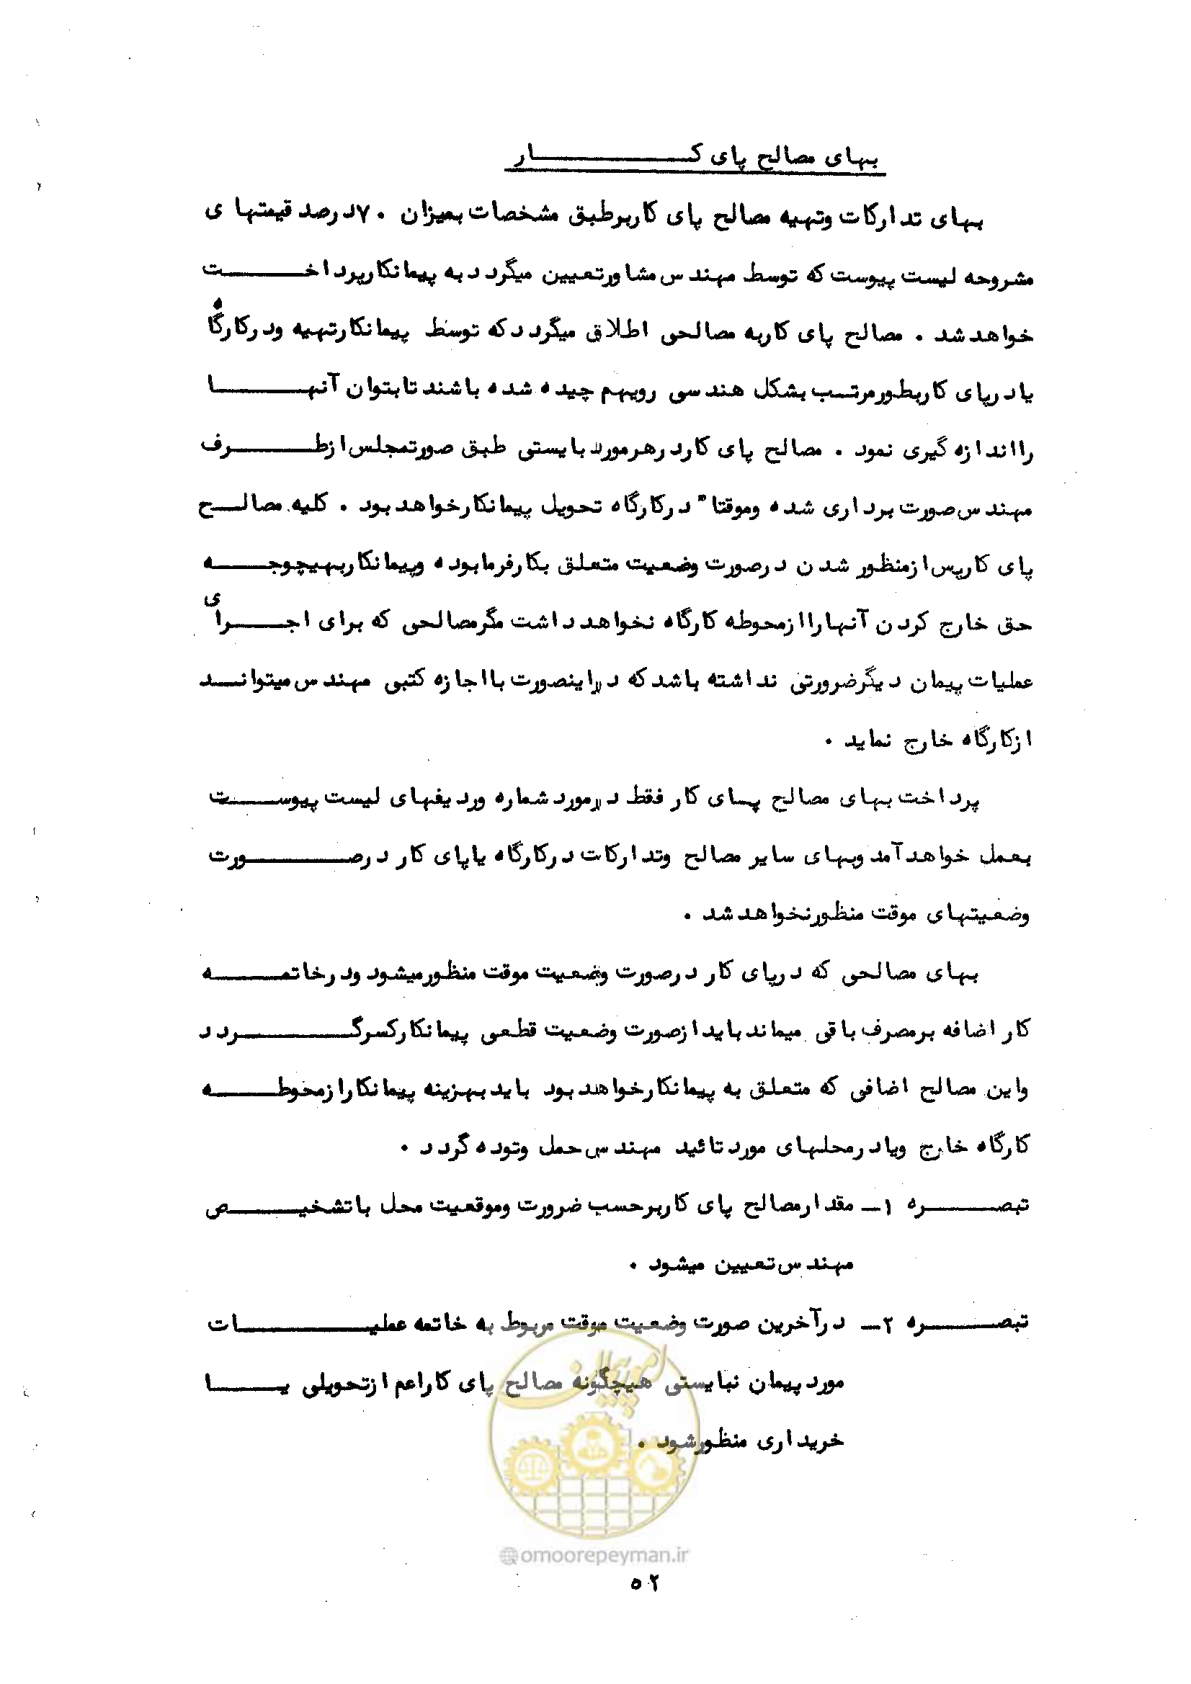 بهای مصالح پای کار
بهای تدارکات وتهیه مصالح پای کاربرطبق مشخصات بمیزان ۷۰درصد قیمتهای
مشروحه لیست پیوست که توسط مهندس مشاورتعیین میگردد به پیمانکارپرداخت
خواهدشد . مصالح پای کاربه مصالحی اطلاق میگردد که توسط پیمانکارتهیه ودرکارگاه
یادرپای کاربطورمرتب بشکل هندسی رویهم چیده شده باشند تابتوان آنها
رااندازه گیری نمود . مصالح پای کاردرهرمورد بایستی طبق صورتمجلس ازطرف
مهندس صورت برداری شده وموقتا" درکارگاه تحویل پیمانکارخواهدبود . کلیه مصالح
پای کارپس ازمنظور شدن درصورت وضعیت متعلق بکارفرمابوده وپیمانکاربهیچوجه
حق خارج کردن آنهاراازمحوطه کارگاه نخواهد داشت مگرمصالحی که برای اجرای
عملیات پیمان دیگرضرورتی نداشته باشدکه دراینصورت بااجازه کتبی مهندس میتواند
ازکارگاه خارج نماید .
پرداخت بهای مصالح پسای کار فقط درمورد شماره وردیفهای لیست پیوست
بعمل خواهدآمد وبهای سایر مصالح وتدارکات درکارگاه یاپای کار درصورت
وضعیتهای موقت منظورنخواهدشد .
بهای مصالحی که درپای کار درصورت وضعیت موقت منظورمیشود ودرخاتمه
کار اضافه برمصرف باقی میماند باید ازصورت وضعیت قطعی پیمانکارکسرگردد
واین مصالح اضافی که متعلق به پیمانکارخواهدبود باید بهزینه پیمانکارازمحوطه
کارگاه خارج ویادرمحلهای موردتائید مهندس حمل وتوده گردد .
تبصره ۱ـ مقدارمصالح پای کاربرحسب ضرورت وموقعیت محل باتشخیص
مهندس تعیین میشود .
تبصره ۲ـ درآخرین صورت وضعیت موقت مربوط به خاتمه عملیات
موردپیمان نبایستی هیچگونه مصالح پای کاراعم ازتحویلی یا
خریداری منظورشود .
امورپیمان
@omoorepeyman.ir
۵۲